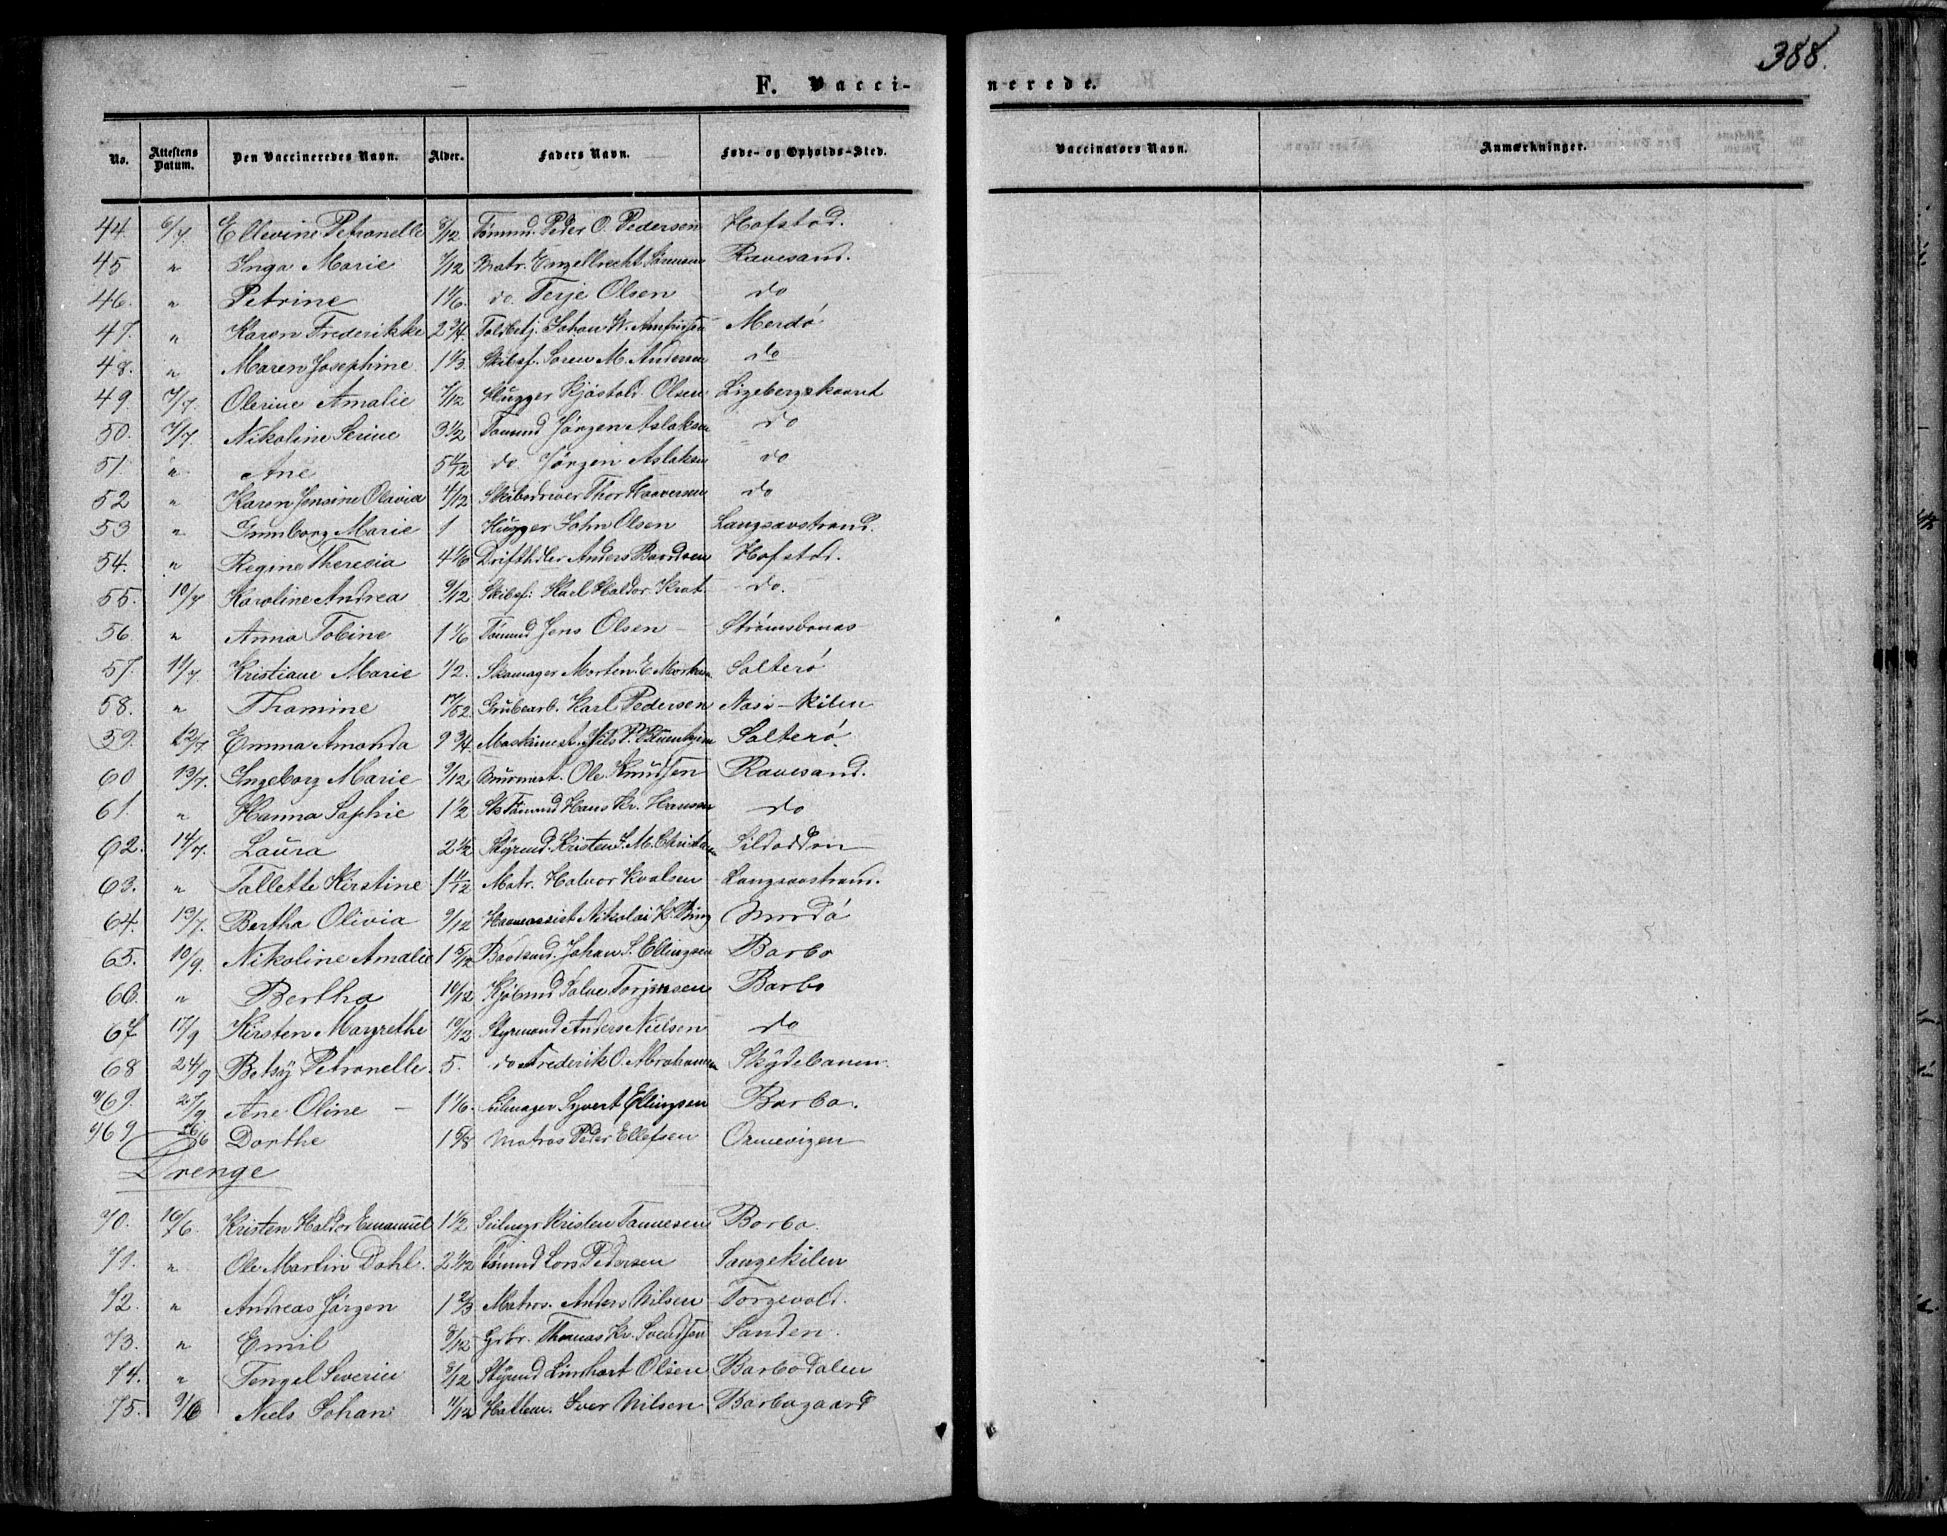 388.
F. Vacci-
nerede.
No. Attestens Datum. Den Vaccineredes Navn. Alder. Faders Navn. Føde- og Opholds-Sted. Vaccinators Navn. Anmærkninger.
44. 6/7. Ellevine Petronelle 8/12 Tømmd. Peder O. Pedersen Hofstad.
45 " Inga Marie 7/12 Matr. Engelbrecht Sørensen Ravesand.
46. " Petrine 1 1/6. do. Terje Olsen do
47. " Karen Frederikke 2 3/4. Toldbetj. Johan W. Merdø
48. " Maren Josephine 1 1/3. Skibsf. Søren M. Andersen do
49. 7/7. Olerine Amalie 7/12 Hugger Kjøstold Olsen
50. 7/7 Nikoline Serine 3 1/2 Tømmd Jørgen Aslaksen do
51. " Ane do. Jørgen Aslaksen do
52 " Karen Jensine Olivia 4/12 Thor Haaversen do
53 " Gunborg Marie 1 Hugger John Olsen Langsævstrand.
54. " Regine Theresia 4 1/6 Anders Hofstad.
55. 10/7 Karoline Andrea 9/12 Skibsf. Haldor do.
56. " Anna Tobine 1 1/6 Tømmd Jens Olsen
57. 11/7. Kristiane Marie 1/2. Skomager Morten E Salterø
58. " Thomine Grubearb. Karl Pedersen
59. 12/7 Emma Amanda 9 3/4 Maskinist. Nils P. Salterø.
60 13/7. Ingeborg Marie 9/12 Ole Knudsen Ravesand.
61. " Hanna Sophie 1 1/2 Hans Kr. Hansen do
62. 14/7. Laura 2 1/2 Styrmd. Kristen S. M. Sildodden
63. " Tallette Kirstine 1 11/12 Matr. Halvor Langsævstrand.
64. 13/7. Bertha Olivia 9/12 Nikolai K. Merdø
65. 10/9. Nikoline Amalie 1 5/12 Baadsmd. Johan S. Ellingsen Barbo
66. " Bertha 10/12 Salve Torjersen Barbo
67 17/9 Kirsten Margrethe 10/12 Styrmand Anders Nielsen do
68 24/9 Betsy Petronelle. 5. do Frederik O. Abrahamsen Skydebanen.
69. 27/9 Ane Oline 1 1/6. Seilmager Syvert Ellingsen Barbo.
69 26/6 Dorthe 1 5/8 Matros Peder Ellefsen
Drenge
70. 16/6. Kristen Haldor Emanuel 1 1/2 Seilmgr Kristen Barbo.
71. " Ole Martin Dahl. 2 1/12 Tømmd Lars Pedersen Langekilen
72. " Andreas Jørgen 1 2/3 Matros. Anders Nilsen Torgevold.
73. " Emil 8/12 Thomas Kr. Svendsen Sanden.
74. " Tengel Severin 8/12 Styrmd Linhart Olsen Barbodalen
75. 9/6 Niels Johan 11/12 Iver Nilsen Barbogaard